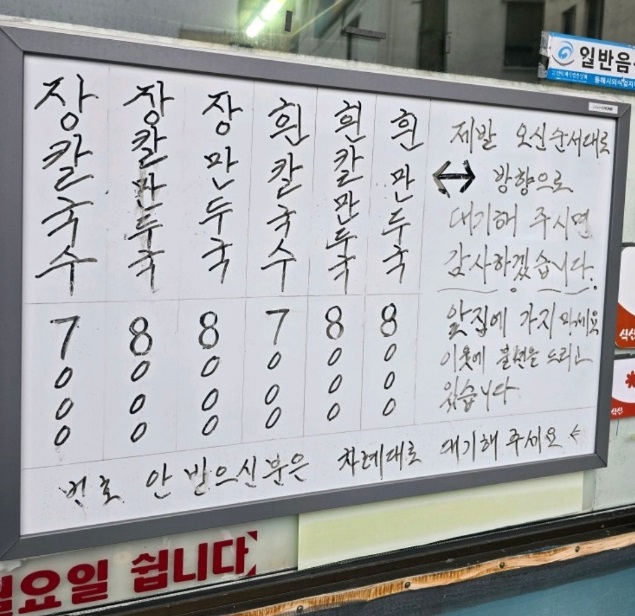 장칼국수 7000
장칼만두국 8000
장만두국 8000
흰칼국수 7000
흰칼만두국 8000
흰만두국 8000
제발 오신순서대로
↔ 방향으로
대기해 주시면
감사하겠습니다.
앞집에 가지 마세요
이웃에 불편을 드리고
있습니다
번호 안 받으신분은 차례대로 대기해 주세요 ←
일반음
요일 쉽니다